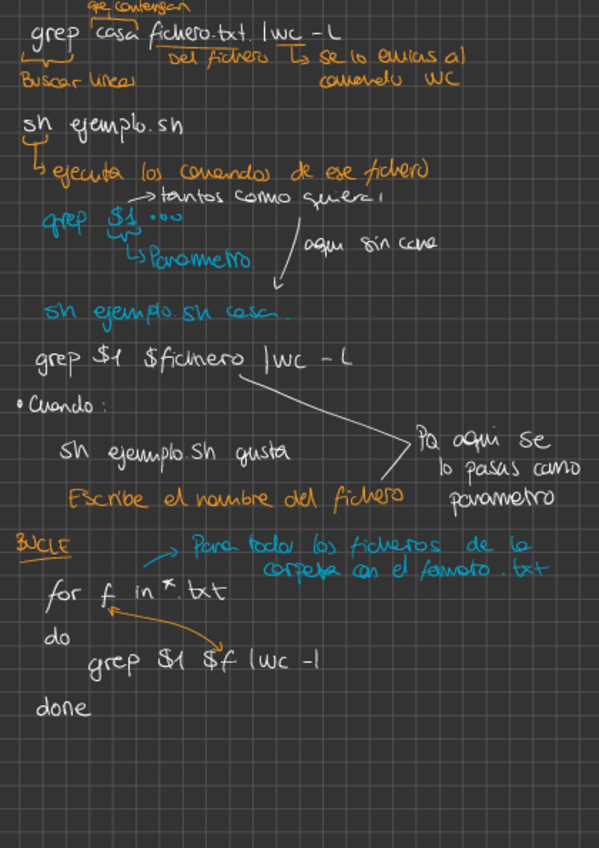 que contengan
grep casa fichero.txt. | wc -L
Buscar lineas
Del fichero
se lo envias al
comando WC
sh ejemplo.sh
ejecuta los comandos de ese fichero
tantos como quieras
grep $1 ...
Parametro.
aqui sin
sh ejemplo.sh casa.
grep $1 $fichero | wc - L
• Cuando:
sh ejemplo.sh gusta
Escribe el nombre del fichero
Pa aqui se
lo pasas como
parametro
BUCLE
Para todos los ficheros de la
carpeta con el formato .txt
for f in *.txt
do
grep $1 $f | wc -l
done